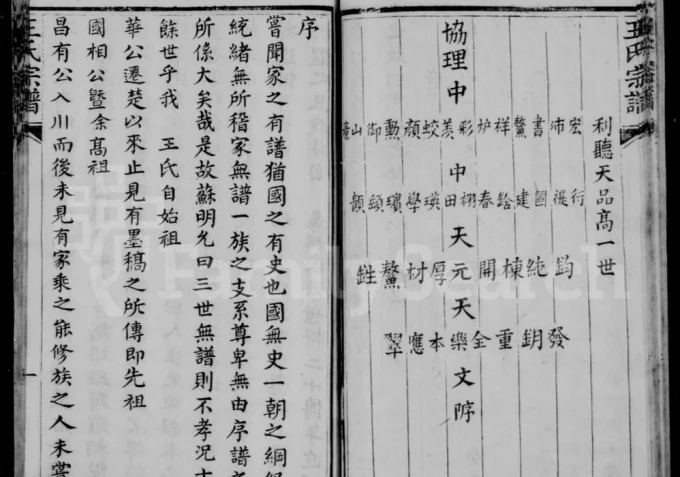 王氏宗譜
利聽天品髙一世
宏行鈞發
沛
書國純鈅
鰲建棟重
祥
炉春開全
彩栩元樂
羡田
蛟瑛厚本
顔學材應
勲璸鰲翠
御
山
協理中 中天天文
序
嘗聞家之有譜猶國之有史也國無史一朝之綱
統緒無所稽家無譜一族之支系尊卑無由序譜之
所係大矣哉是故蘇明允曰三世無譜則不孝況
餘世乎我 王氏自始祖
華公遷楚以來止見有墨稿之所傳即先祖
國相公暨余髙祖
昌有公入川而後未見有家乘之能修族之人未嘗
王氏宗譜
一
Family Search